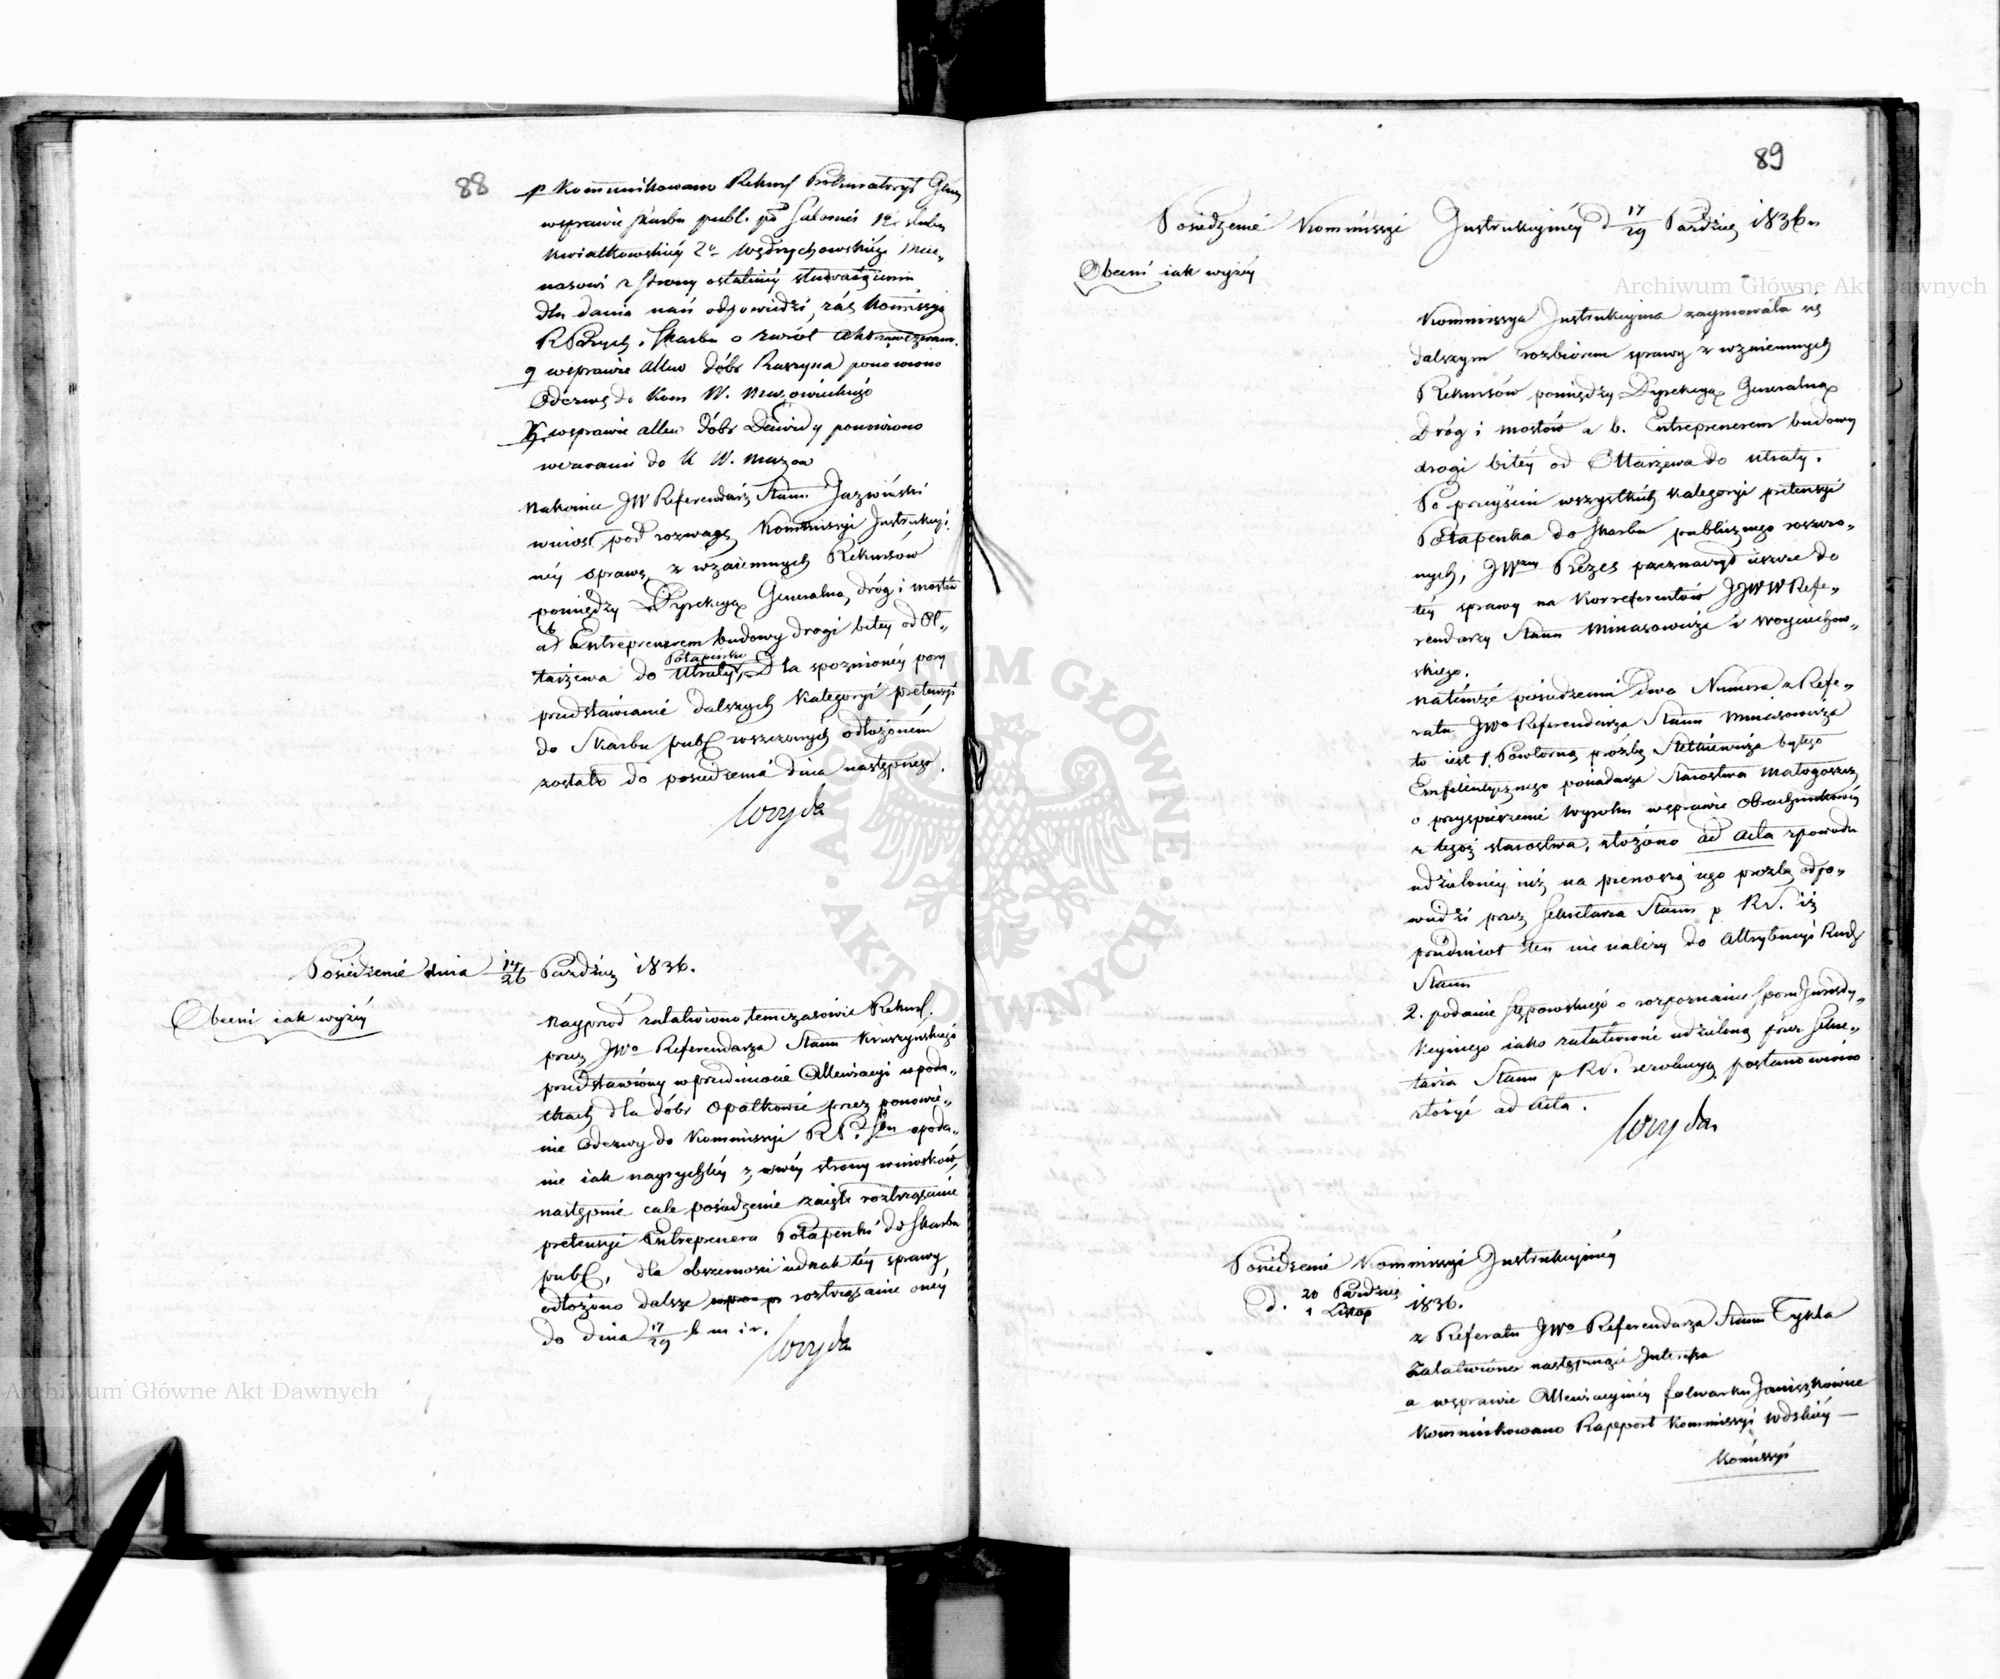 88
p Kommunikowano Rekurs Prokuratoryi Gener
wsprawie Skarbu publ. po Salomei 1o ślubu
Kwiatkowskiéy 2o Wędrychowskiéy
z strony ostatniéy
dla dania nań odpowiedzi, zaś Kommissyą
RPrzych. i Skarbu o zwrot Akt
q wsprawie dóbr Raszyna ponowiono
Odezwę do Kom W. Mazowieckiégo
wsprawie dóbr Dawidy ponowiono
wezwanie do K W. Mazow
Nakoniec JW Referendarz Stanu Jazwiński
wniosł pod rozwagę Kommissyi Instrukcyi
néy sprawę z wzaiemnych Rekursów
pomiędzy Dyrekcyą Generalną dróg i mostów
a b Entreprenerem budowy drogi bitey od Oł„
tarzewa do Utraty, Potapenko Dla spoznionéy pory
przedstawianie dalszych Kategoryi pretensyi
do Skarbu publ wszczonych odłożoném
zostało do posiedzenia dnia następnego.
Woyda
Posiedzenie dnia 14/26 Pazdźier 1836.
Obecni iak wyżéy
Nayprzód załatwiono temczasowie Rekurs.
przez JWo Referendarza Stanu Kruszyńskiégo
przedstawiony wprzedmiocie Allewiacyi w poda„
tkach dla dóbr Opatkowić przez ponowie„
nie Odezwy do Kommissyi RP. i Sbu o poda„
nie iak nayrychléy z swéy strony wniosków,
następnie całe posiedzenie zaięło roztrząsanie
pretensyi Entreprenera Potapenki do Skarbu
publ, dla obszerności iednak téy sprawy
odłożono dalsze roztrząsanie onéy
do dnia 17/29 b m i r.
Woyda
89
Posiedzenie Kommissyi Instrukcyinéy d 17/29 Pazdźier 1836 r
Obecni iak wyżéy
Kommissya Instrukcyina zaymowała się
dalszym rozbiorem sprawy z wzaiemnych
Rekursów pomiędzy Dyrekcyą Generalną
Dróg i mostów a b. Entreprenerem budowy
drogi bitéy od Ołtarzewa do Utraty.
Po przeyściu wszystkich Kategoryi pretensyi
Potapenka do Skarbu publicznego roszczo„
nych, JWny Prezes przeznaczył ieszcze do
téy sprawy na Korreferentów JJWW Refe„
rendarzy Stanu Minasowicza i Woyciechow„
skiego.
Natémże posiedzeniu dwa Numera z Refe„
ratu JWo Referendarza Stanu Minasowicza
to iest 1. Powtorną prośbę byłego
Emfiteutycznego posiadacza Starostwa Małogoszcz
o przyspieszenie wyroku wsprawie Obrachunkowéy
z tegoż starostwa, złożono ad acta zpowodu
udzielonéy iuż na pierwszą iego prozbę odpo„
wiedzi przez Sekretarza Stanu p RS. iż
przedmiot ten nie należy do Attrybucyi Rady
Stanu
2. podanie Stępowskiégo o rozpoznanie sporu Jurisdy„
kcyinego iako załatwione udzieloną przez Sekre„
tarza Stanu p RS. rezolucyą postanowiono
złożyć ad acta.
Woyda
Posiedzenie Kommissyi Instrukcyinéy
d. 20 Pazdźier / 1 Listop 1836.
z Referatu JWo Referendarza Stanu Tykla
Załatwiono następuiące Interessa
a wsprawie Allewiacyinéy folwarku Janiszkowice
Kommunikowano Rapport Kommissyi Wdzkiéy —
Komissyi
Archiwum Główne Akt Dawnych
Archiwum Główne Akt Dawnych
ARCHIWUM GŁÓWNE · AKT DAWNYCH ·